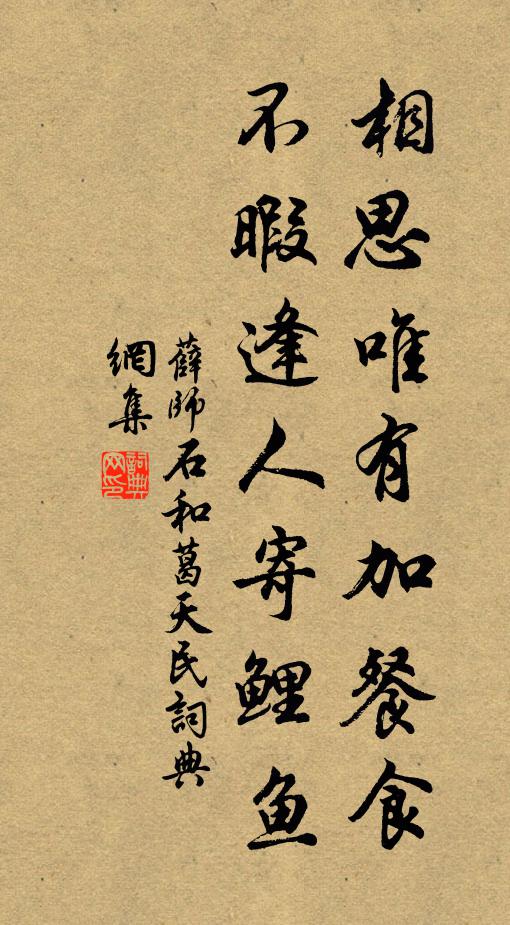 相思唯有加餐食
不暇逢人寄鲤鱼
薛師石和葛天民詞典
網集
詞典
网印